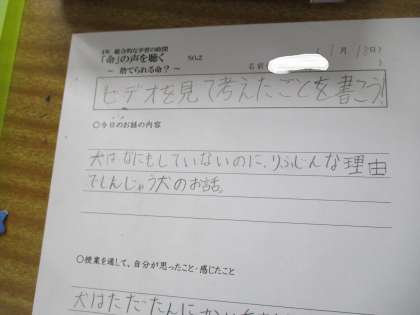 4年 総合的な学習の時間
「命」の声を聴く NO.2
~ 捨てられる命?~
名前
( 月 2日)
)
ビデオを見て考えたことを書こう!
○今日のお話の内容
犬はなにもしていないのに、りふじんな理由
でしんじゃう犬のお話。
○授業を通して、自分が思ったこと・感じたこと
犬はただたんに